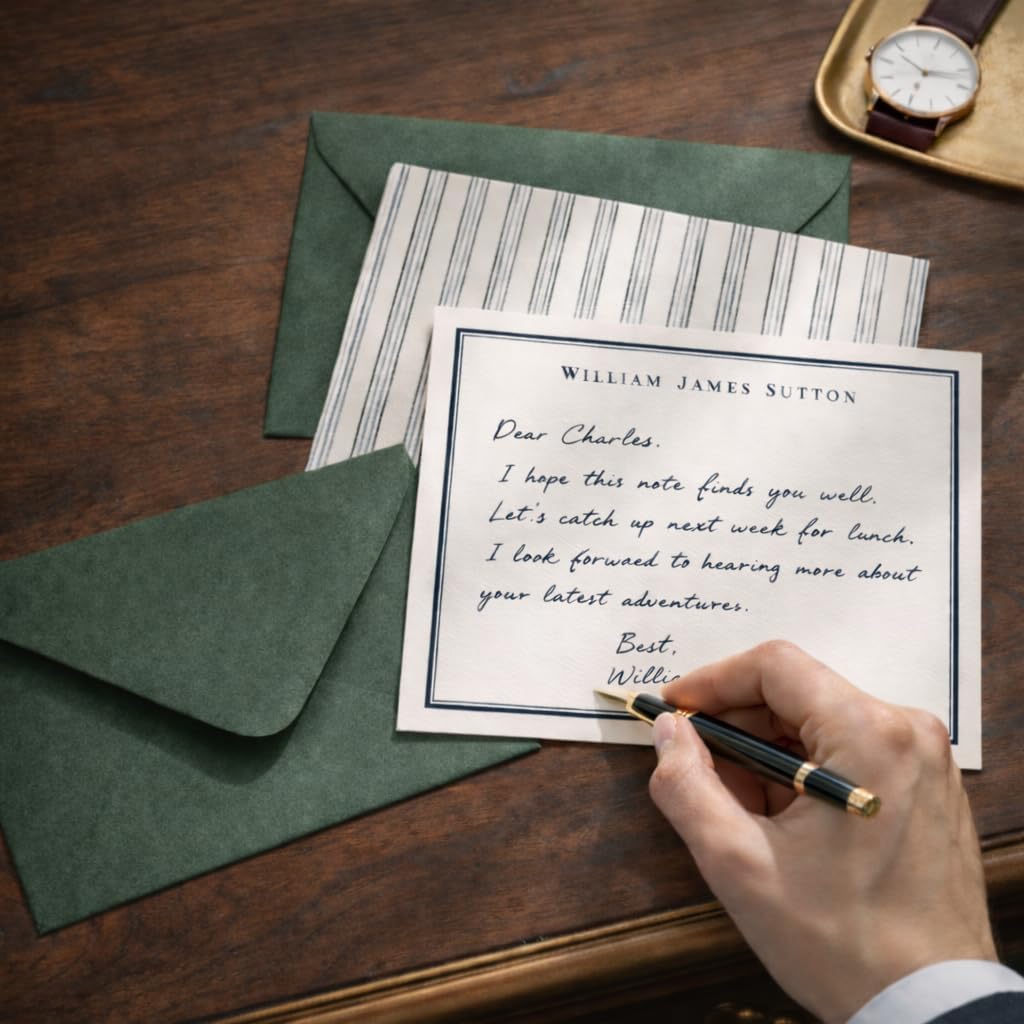 WILLIAM JAMES SUTTON
Dear Charles.
I hope this note finds you well.
Let's catch up next week for lunch.
I look forwaed to hearing more about
your latest adventures.
Best,
Willia